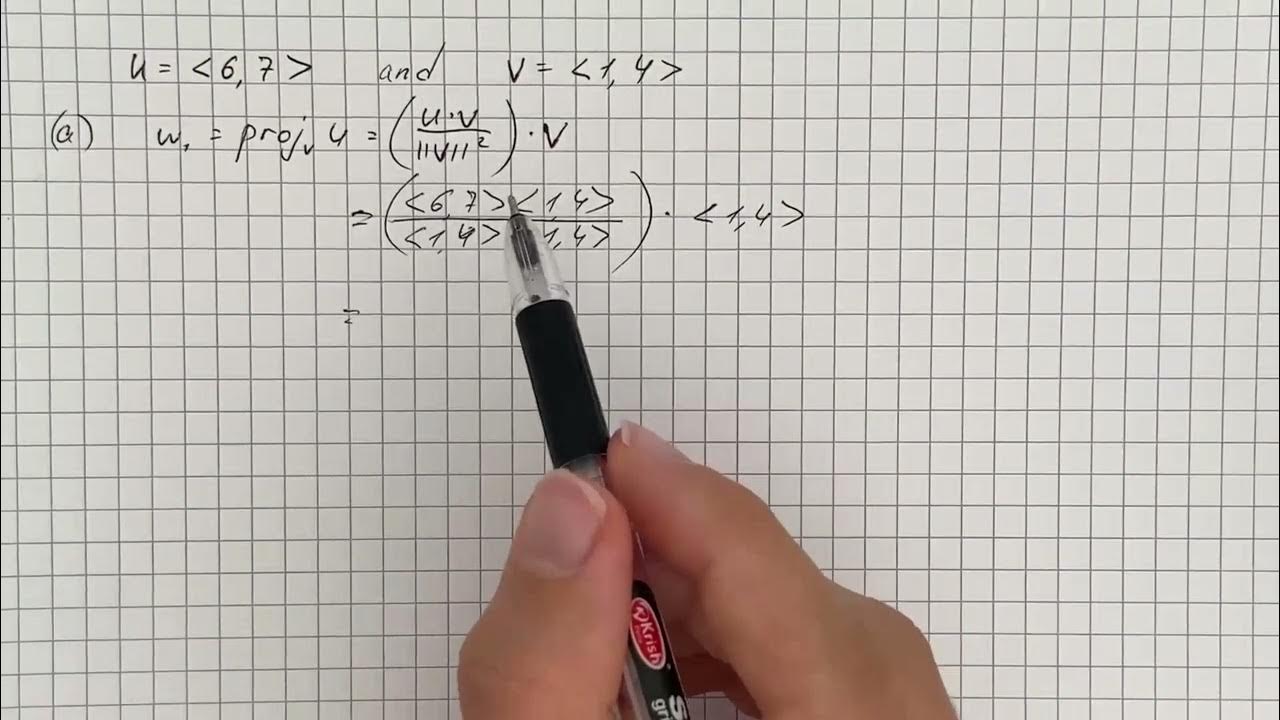 u = <6, 7> and v = <1, 4>
(a) w₁ = projᵥ u = (u·v / ||v||²) · v
= (<6, 7> <1, 4> / <1, 4> 1, 4>) · <1, 4>
=
Krish
gri